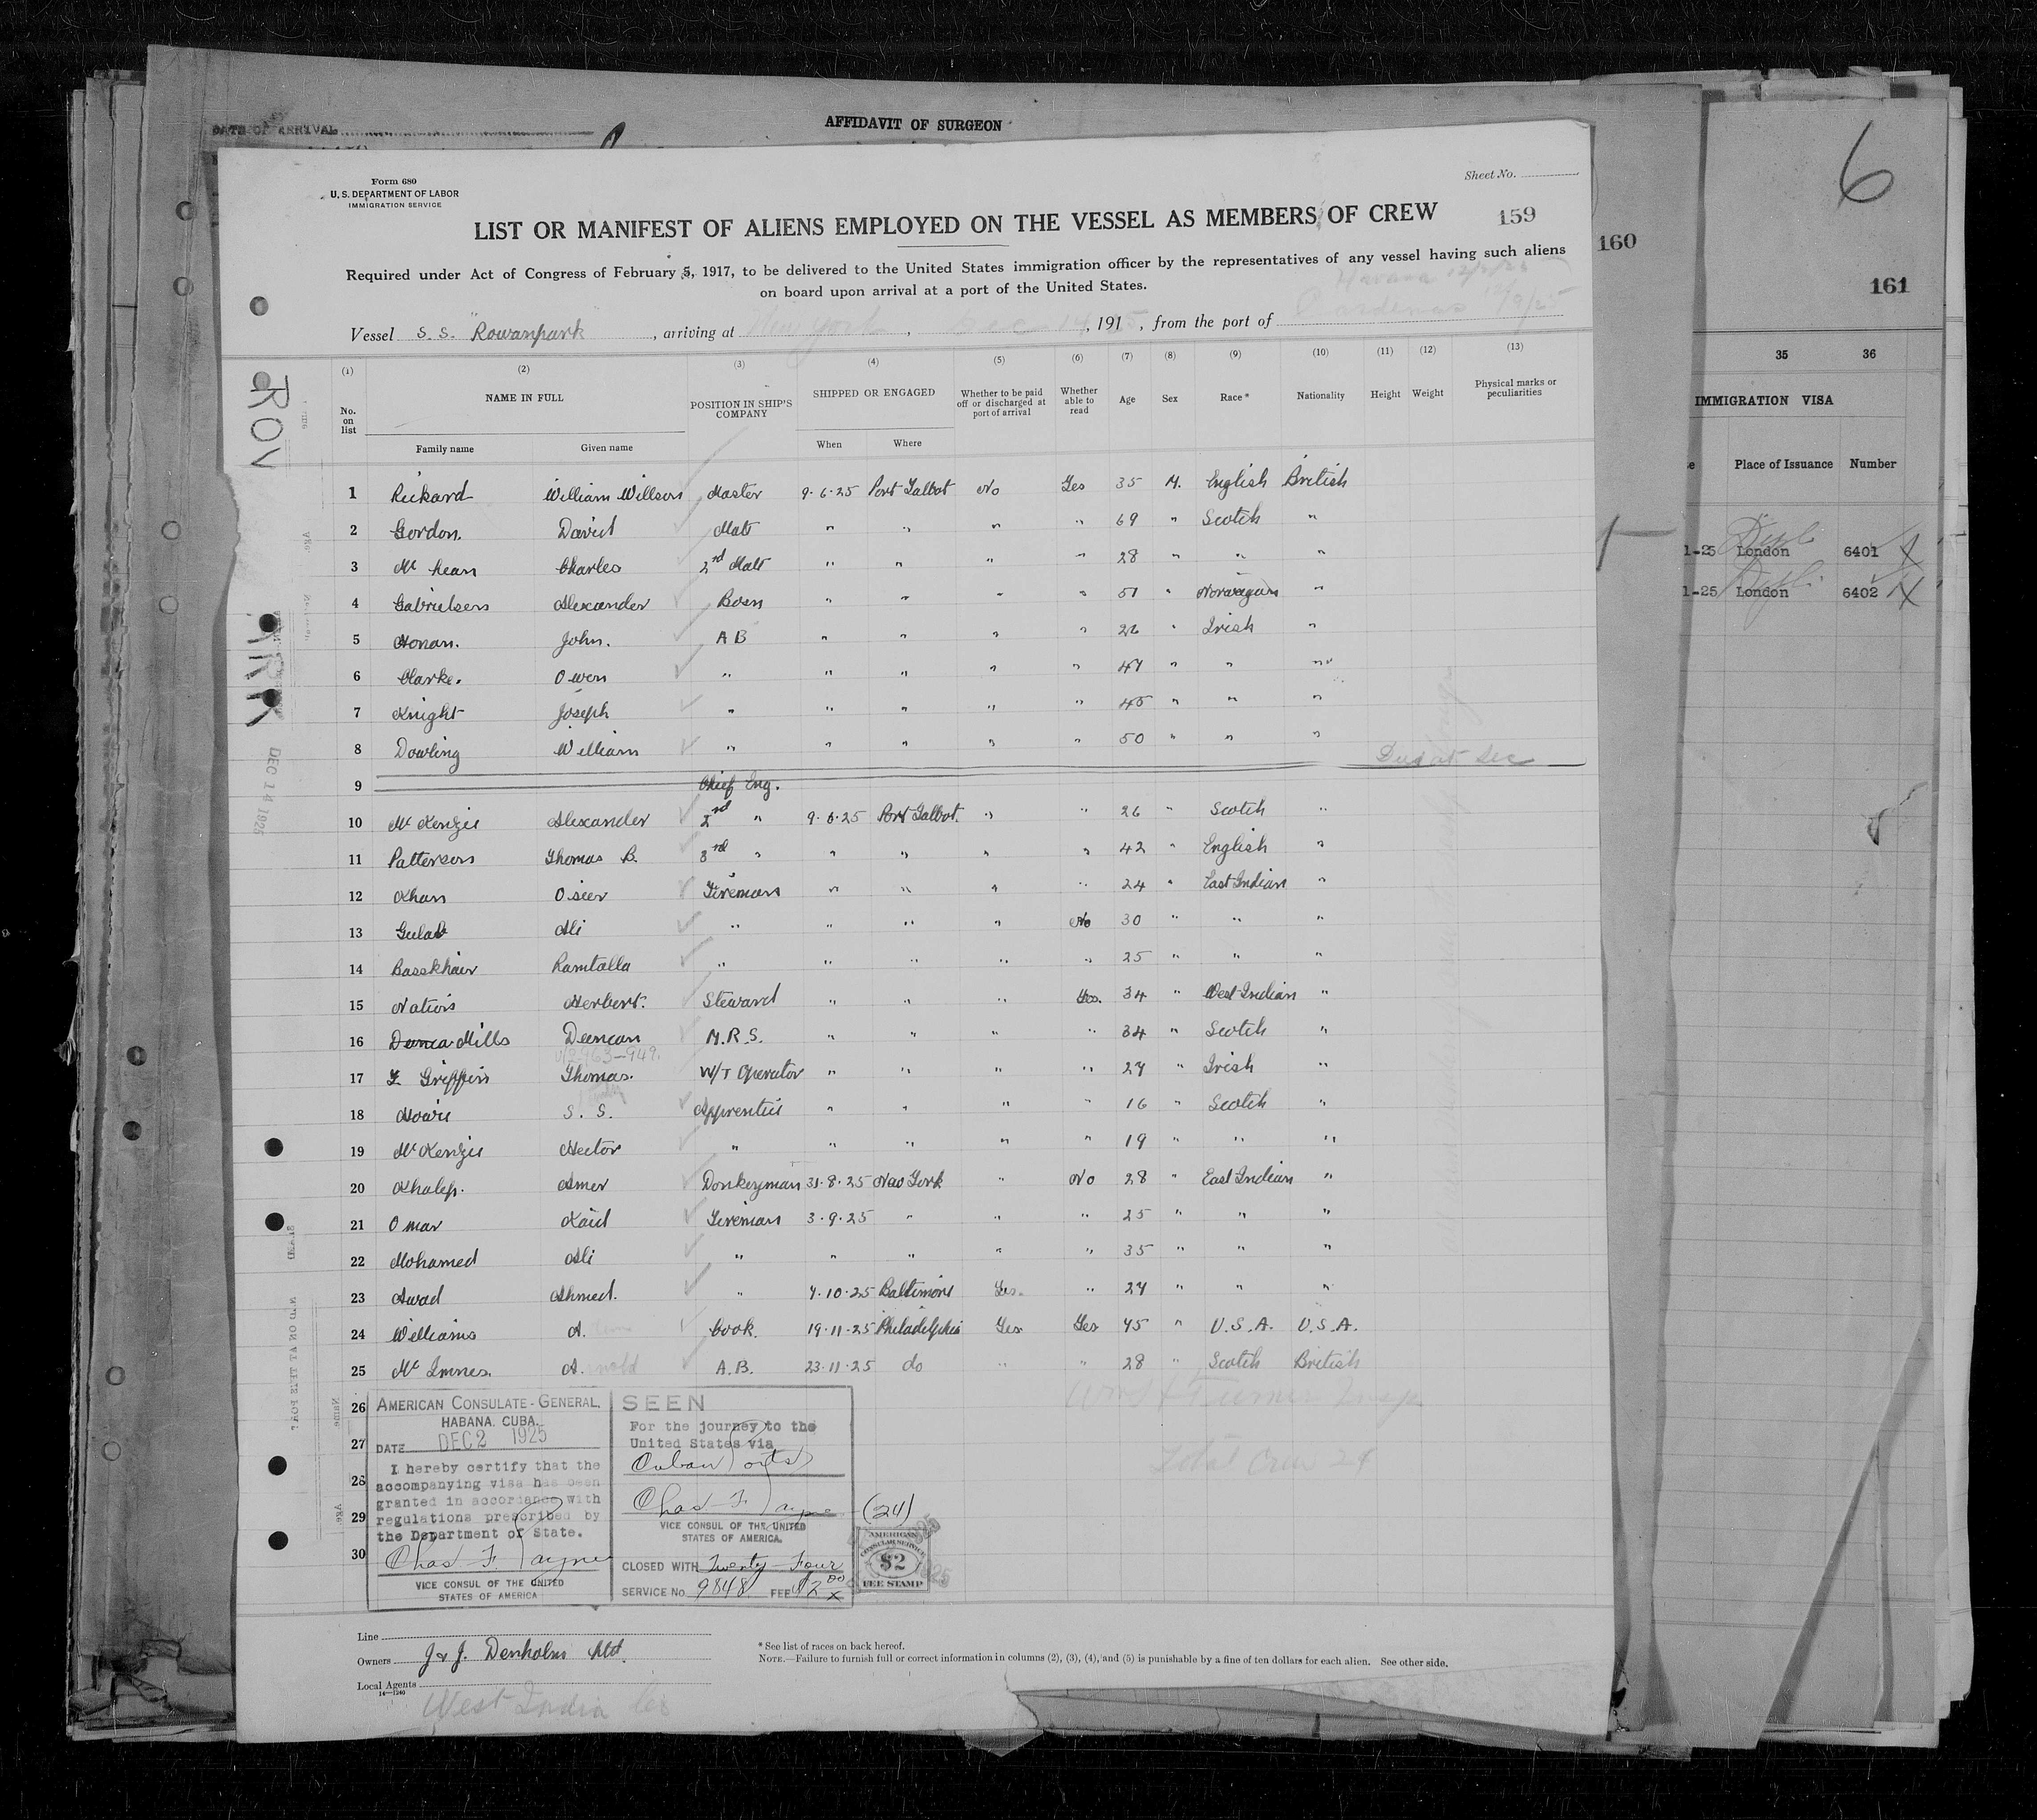 DATE OF ARRIVAL
AFFIDAVIT OF SURGEON
6
Form 680
U. S. DEPARTMENT OF LABOR
IMMIGRATION SERVICE
Sheet No.
LIST OR MANIFEST OF ALIENS EMPLOYED ON THE VESSEL AS MEMBERS OF CREW 159
160
161
Required under Act of Congress of February 5, 1917, to be delivered to the United States immigration officer by the representatives of any vessel having such aliens
on board upon arrival at a port of the United States.
Havana 12/
Vessel S. S. "Rowanpark" , arriving at New York , Dec 14 25 , 191 , from the port of Cardenas 12/9/25
(1) (2) (3) (4) (5) (6) (7) (8) (9) (10) (11) (12) (13)
No. on list NAME IN FULL POSITION IN SHIP'S COMPANY SHIPPED OR ENGAGED Whether to be paid off or discharged at port of arrival Whether able to read Age Sex Race* Nationality Height Weight Physical marks or peculiarities
Family name Given name When Where
1 Rickard William Willson Master 9·6·25 Port Talbot No Yes 35 M. English British
2 Gordon. David Mate " " " " 69 " Scotch "
3 Mc Kean Charles 2nd Mate " " " " 28 " " "
4 Gabrielsen Alexander Bosn " " " " 51 " Norwegian "
5 Honan. John. A B " " " " 26 " Irish "
6 Clarke. Owen " " " " " 47 " " "
7 Knight Joseph " " " " " 45 " " "
8 Dowling William " " " " " 50 " " "
9 Chief Eng.
10 Mc Kenzie Alexander 2nd " 9·6·25 Port Talbot. " " 26 " Scotch "
11 Patterson Thomas B. 3rd " " " " " 42 " English "
12 Khan Oseer Fireman " " " " 24 " East Indian "
13 Gulab Ali " " " " No 30 " " "
14 Basskhair Ramtalla " " " " " 25 " " "
15 Nation Herbert. Steward " " " Yes. 34 " West Indian "
16 Mills Duncan M.R.S. " " " " 34 " Scotch "
17 T. Griffin Thomas. W/T Operator " " " " 27 " Irish "
18 Hoare S. S. Apprentice " " " " 16 " Scotch "
19 Mc Kenzie Hector " " " " " 19 " " "
20 Khalep. Amer Donkeyman 31·8·25 New York " No 28 " East Indian "
21 Omar Kaid Fireman 3·9·25 " " " 25 " " "
22 Mohamed Ali " " " " " 35 " " "
23 Awad Ahmed. " 7·10·25 Baltimore Yes. " 27 " " "
24 Williams A. Cook. 19·11·25 Philadelphia Yes Yes 45 " U.S.A. U.S.A.
25 Mc Innes. Arnold A.B. 23·11·25 do " " 28 " Scotch British
26
27
28
29
30
Total Crew 24
AMERICAN CONSULATE-GENERAL.
HABANA. CUBA.
DATE DEC 2 1925
I hereby certify that the
accompanying visa has been
granted in accordance with
regulations prescribed by
the Department of State.
Chas F Payne
VICE CONSUL OF THE UNITED
STATES OF AMERICA
SEEN
For the journey to the
United States via
Cuban Ports
Chas F Payne
VICE CONSUL OF THE UNITED
STATES OF AMERICA.
CLOSED WITH Twenty-Four
SERVICE No. 9848 FEE $2.00
(24)
AMERICAN
CONSULAR SERVICE
$2
FEE STAMP
Line
Owners J & J. Denholm Ltd.
Local Agents
14—1240
West India Co
*See list of races on back hereof.
NOTE.—Failure to furnish full or correct information in columns (2), (3), (4), and (5) is punishable by a fine of ten dollars for each alien. See other side.
DEC 14 1925
35 36
IMMIGRATION VISA
Place of Issuance Number
1-25 London 6401
1-25 London 6402